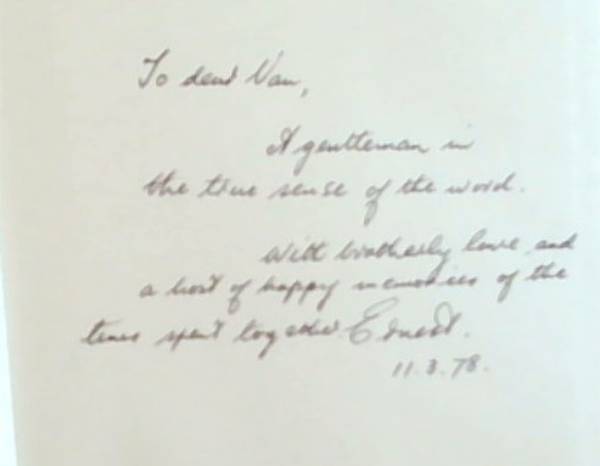 To dear Van,
A gentleman in
the true sense of the word.
With brotherly love and
a host of happy memories of the
times spent together Ernest.
11.3.78.